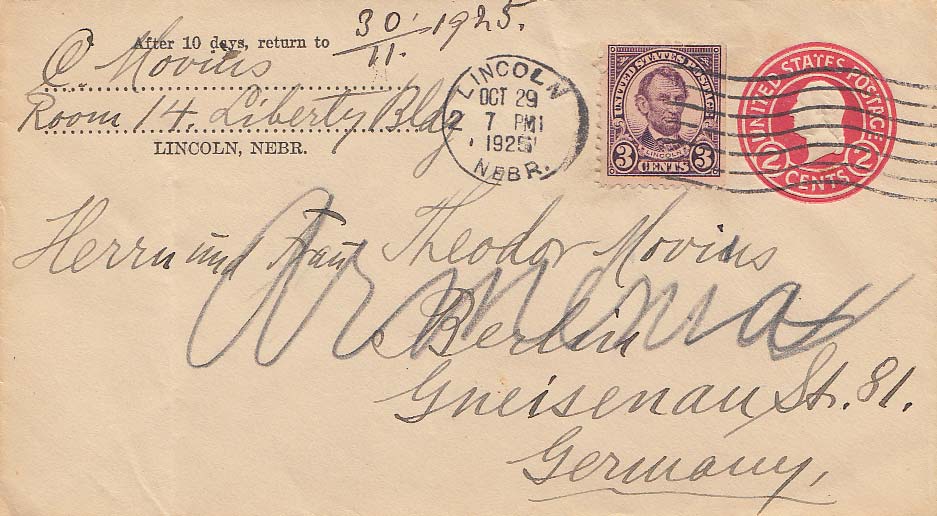 After 10 days, return to
30/11. 1925.
C Movius
Room 14. Liberty Bldg
LINCOLN, NEBR.
LINCOLN
OCT 29
7 PM
1925
NEBR.
2
UNITED STATES POSTAGE
LINCOLN
3 CENTS 3
UNITED STATES POSTAGE
2 CENTS 2
Herrn und Frau Theodor Movius
Berlin
Gneisenau St. 81.
Germany.